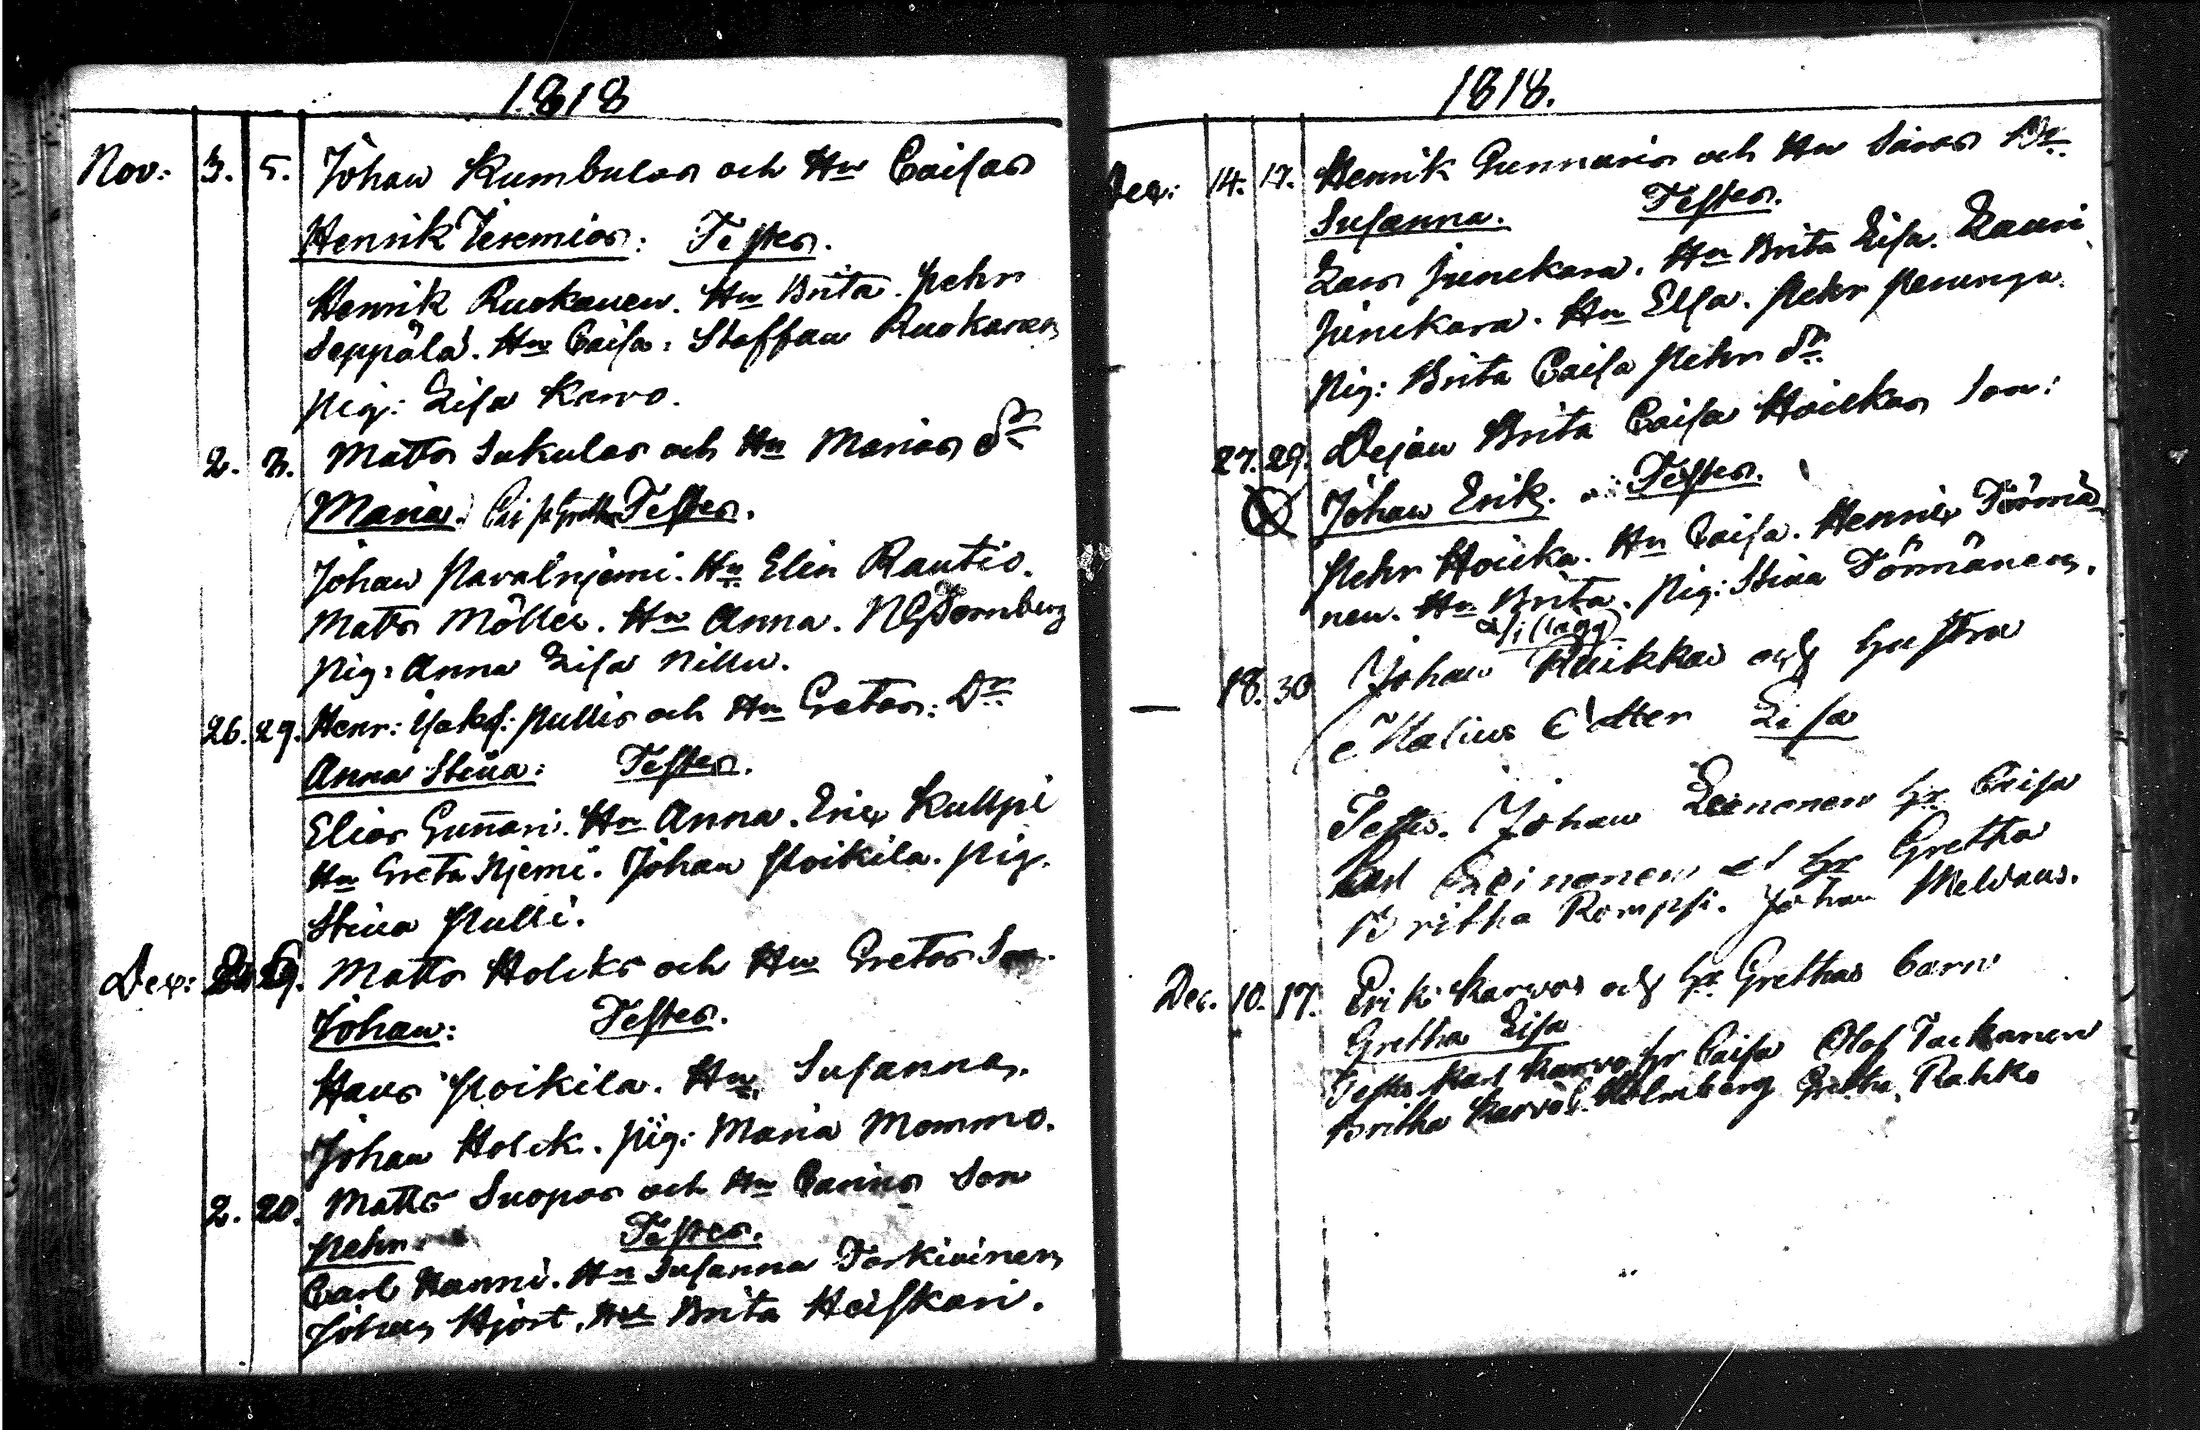 1818
Nov: 3. 5. Johan Kumbulas och Hu Caisas
Henrik Jeremias: Testes.
Henrik Ruokanen. Hu Brita. Pehr
Seppälä. Hu Caisa: Staffan Ruokanen
Pig: Lisa Karvo.
2. 3. Matts Sukulas och Hu Marias dr
Maria. Testes.
Johan Paralnjemi. Hu Elin Rautio.
Matts Möller. Hu Anna. Dornberg
Pig: Anna Lisa Nillu.
26. 29. Henr: Pullis och Hu Gretas: Dr
Anna Stina: Testes.
Elias Gunnari. Hu Anna. Eric Kulppi
Hu Greta Njemi. Johan Poikila. Pig.
Stina Pulli.
Dec: Matts Holcks och Hu Gretas Son.
Johan: Testes.
Hans Poikila. Hu Susanna.
Johan Holck. Pig: Maria Mommo.
2. 20. Matts Suopas och Hu Carins Son
Pehr. Testes.
Carl Hanni. Hu Susanna Torkivinen
Johan Hjort. Hu Brita Heiskari.
1818.
Dec: 14. 17. Henrik Gunnaris och Hu Saras Dr
Susanna. Testes.
Lars Junckara. Hu Brita Lisa. Lauri
Junckara. Hu Elsa. Pehr
Pig: Brita Caisa Pehr dr
27. 29. Dejan Brita Caisa Hoickas Son:
Johan Erik. Testes.
Pehr Hoicka. Hu Caisa. Henric Törmä-
nen. Hu Brita. Pig: Stina Törmänen.
18. 30 Johan och Hustru
dotter Lisa
Testes. Johan Leinonen hr Caisa
Carl Leinonen et hr Gretha
Britha Rompsi. Johan
Dec. 10. 17. Erik Karvos och hr Grethas barn
Gretha Lisa
Testes Karl Karvo hr Caisa Olof Tackanen
Britha Karvo Holmberg Gretha Rahko